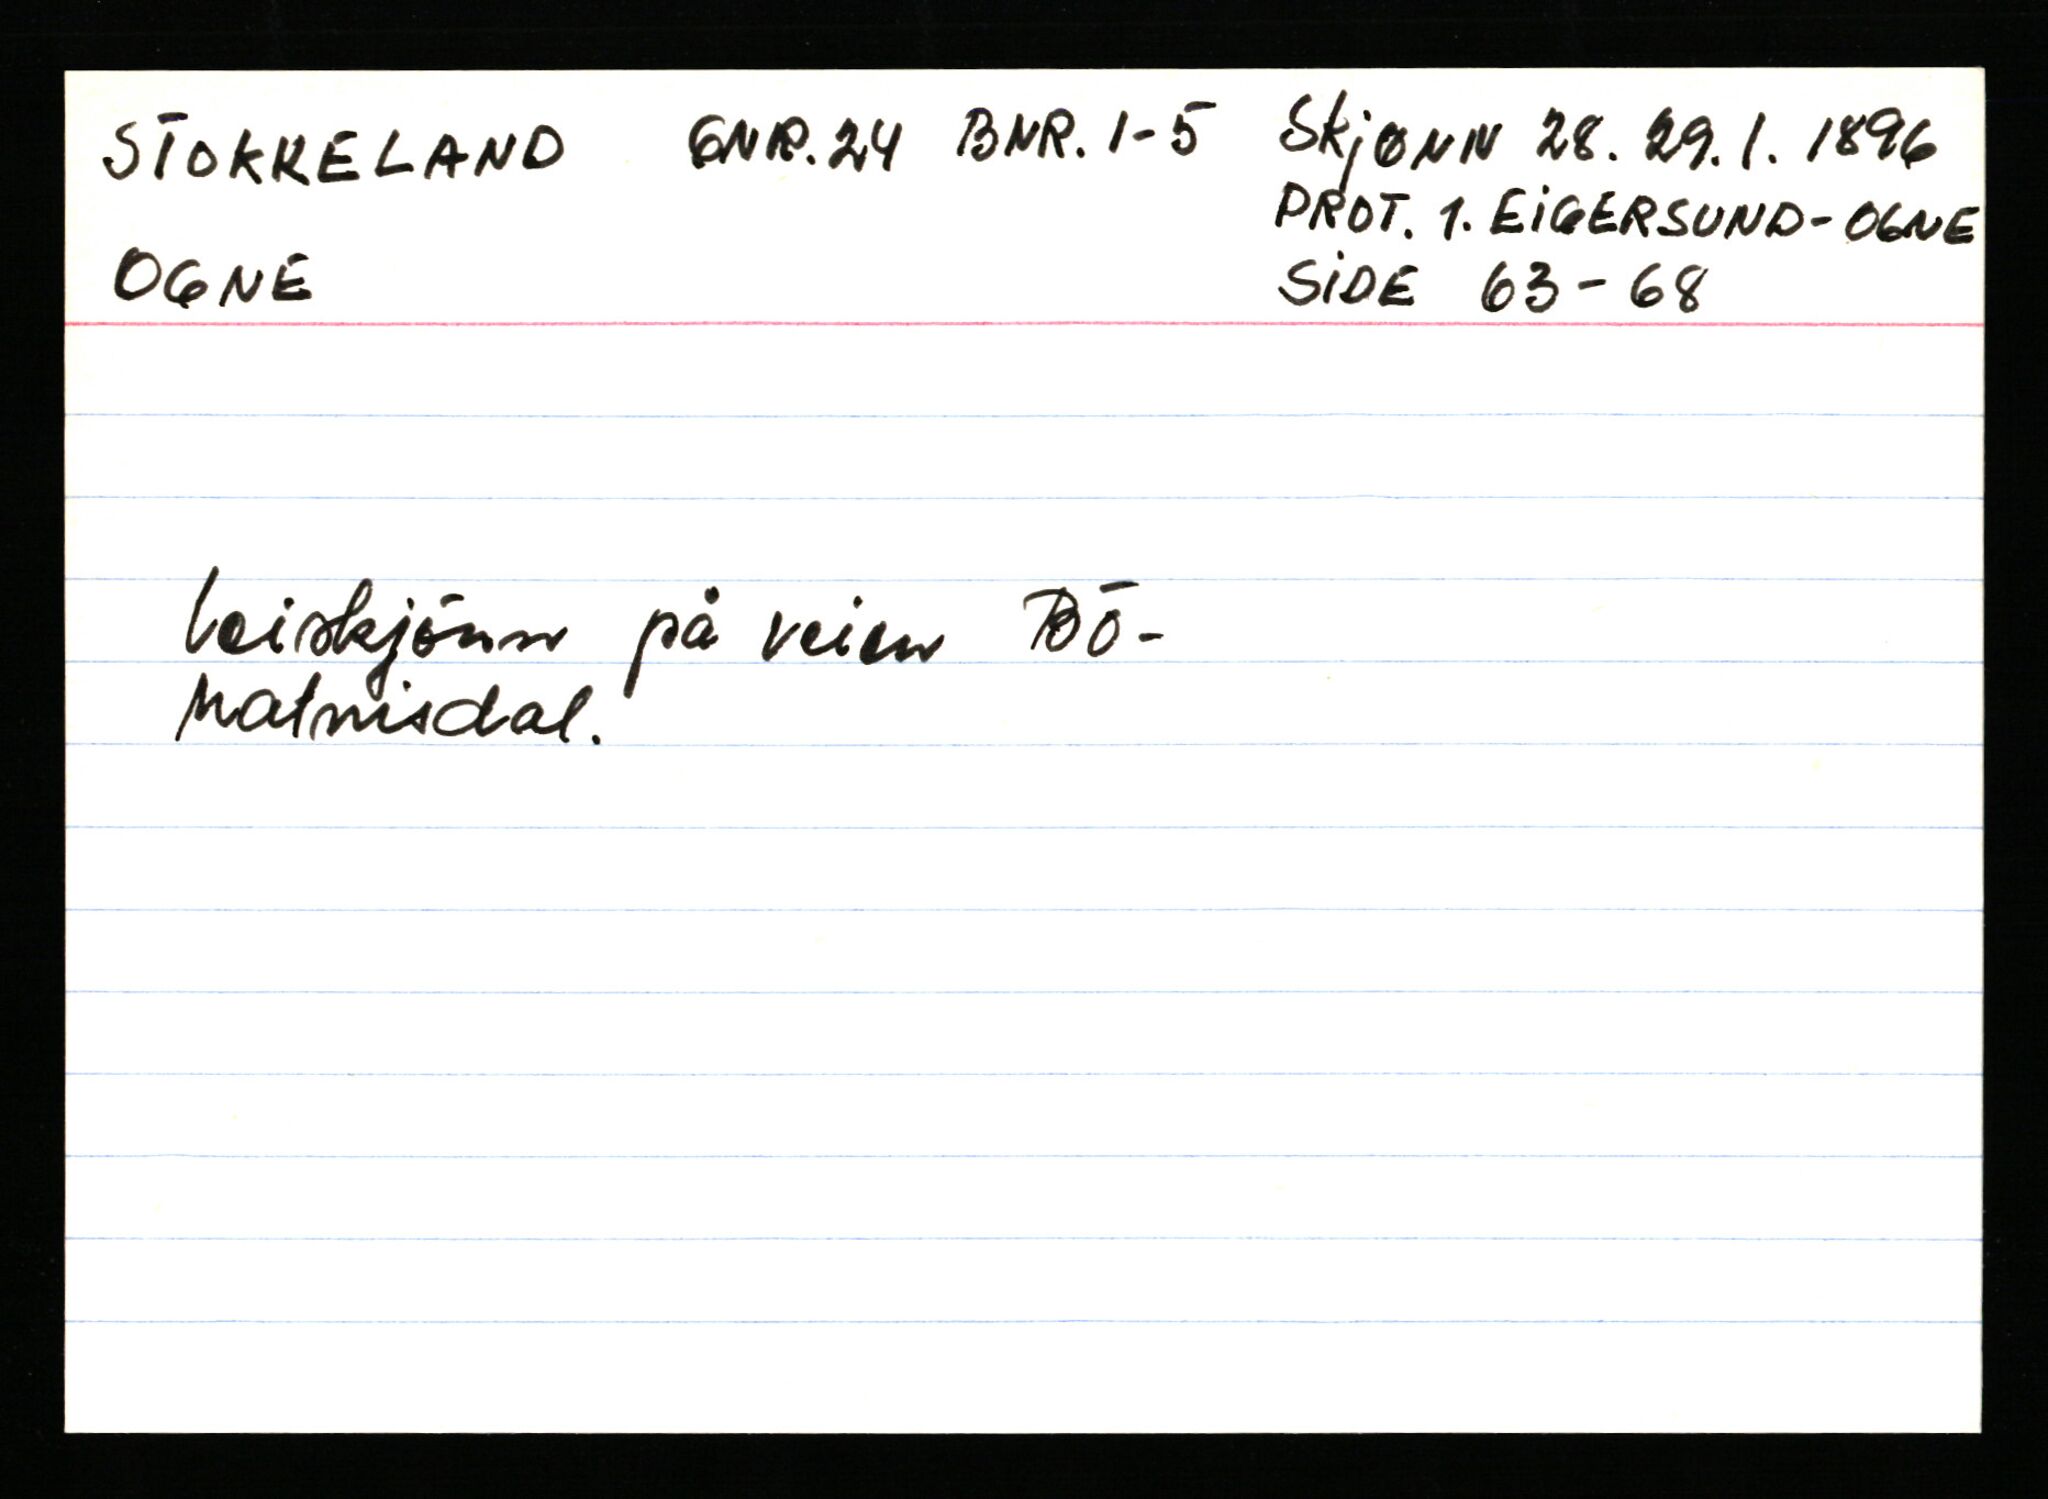 STOKKELAND GNR. 24 BNR. 1-5 Skjønn 28. 29. 1. 1896
PROT. 1. EIGERSUND-OGNE
OGNE SIDE 63-68
Veiskjönn på veien Bö-
Matnisdal.